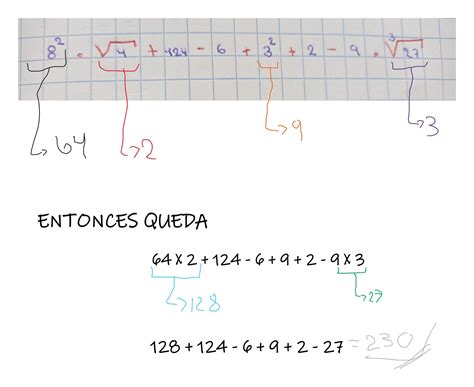 8² · √4 + 124 - 6 + 3² + 2 - 9 · ³√27
64 2 9 3
ENTONCES QUEDA
64 x 2 + 124 - 6 + 9 + 2 - 9 x 3
128 27
128 + 124 - 6 + 9 + 2 - 27 = 230